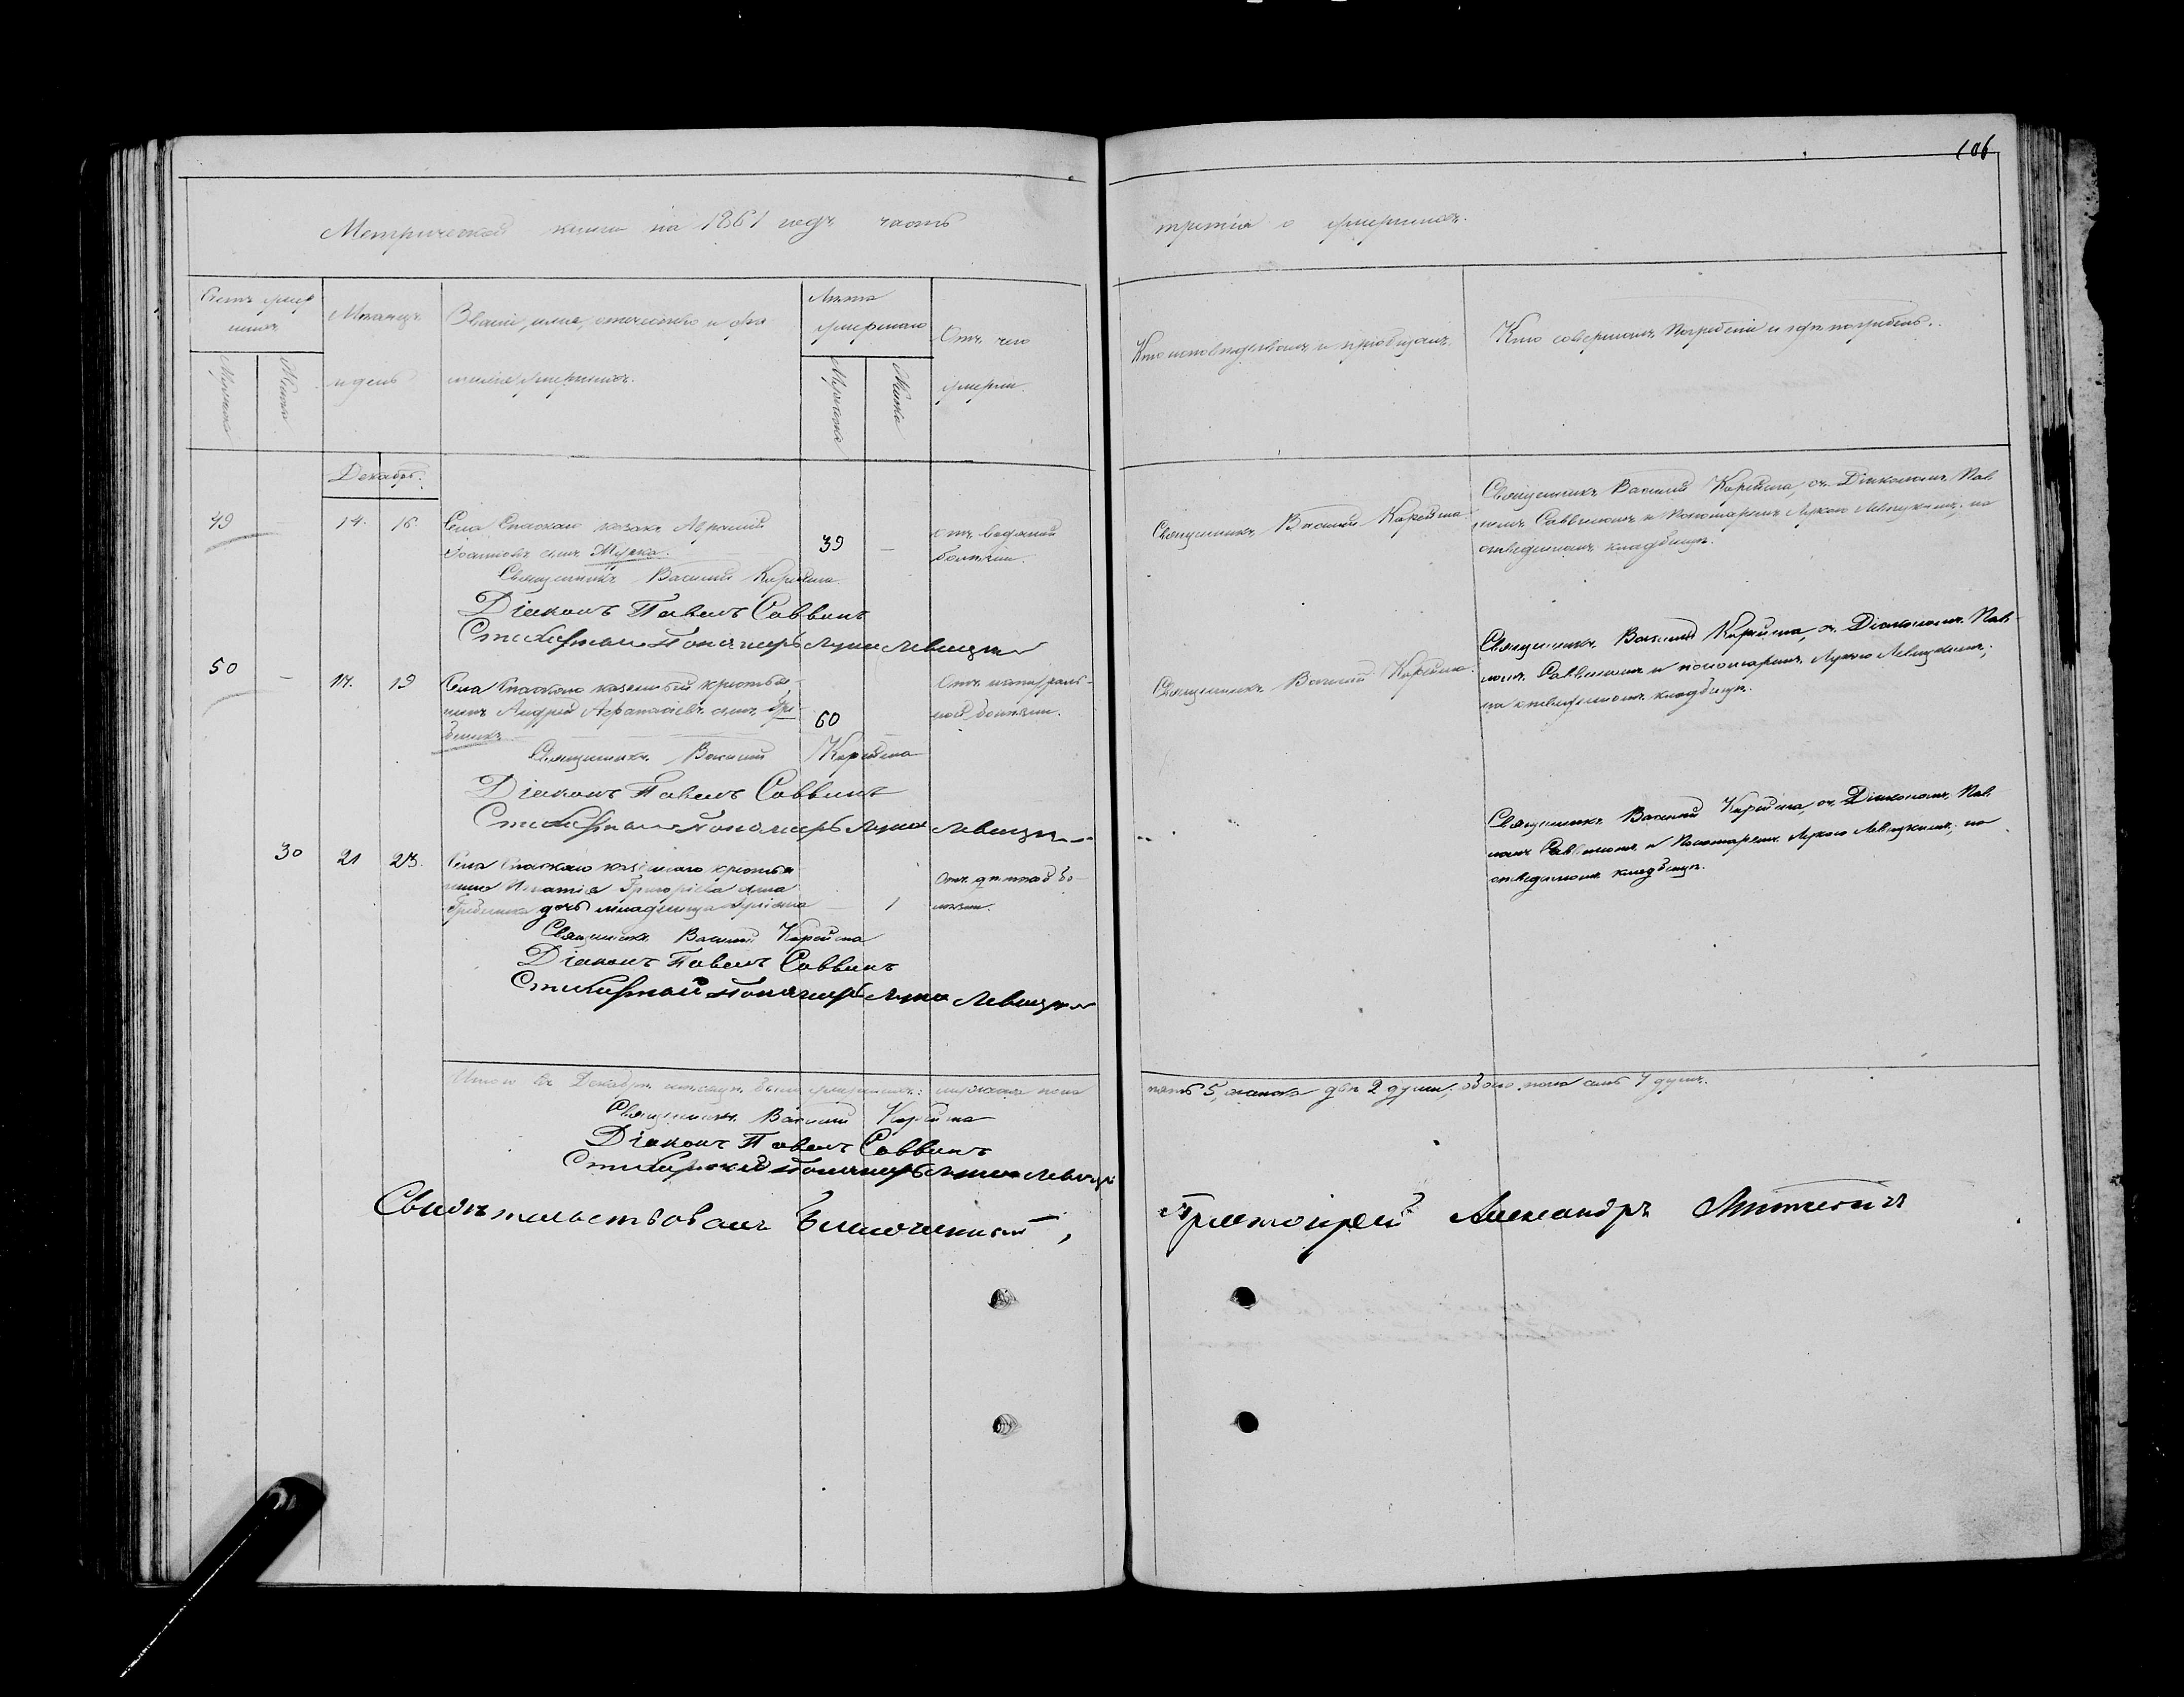 106
Метрической книги на 1861 годъ часть
третія о умершихъ.
Счетъ умер
шихъ
Мужеска
Женска
Мѣсяцъ
и день
Званіе, имя, отчество и фа
милія умершихъ.
Лѣта
умершаго
Мужеска
Женска
Отъ чего
умерли.
Кто исповѣдывалъ и пріобщалъ.
Кто совершалъ погребеніе и гдѣ погребены.
Декабрь.
49 – 14. 16. Села Спаскаго казакъ
Іоанновъ сынъ 39 – отъ водяной
болѣзни.
Священникъ Василій
Діаконъ Павелъ Саввинъ
Стихарный Пономарь Лука Левицкій
Священникъ Василій
Священникъ Василій съ Діакономъ Пав
ломъ Саввинымъ и Пономаремъ Лукою Левицкимъ, на
отведенномъ кладбищѣ.
50 – 17. 19 Села Спаского казенный крестья-
нинъ Андрей Афанасіевъ сынъ Гре
беникъ 60 Отъ натураль-
ной болѣзни.
Священникъ Василій
Діаконъ Павелъ Саввинъ
Стихарный Пономарь Лука Левицкій
Священникъ Василій
Священникъ Василій съ Діакономъ Пав
ломъ Саввинымъ и пономаремъ Лукою Левицкимъ,
на отведенномъ кладбищѣ.
30 21 23. Села Спаскаго казеннаго крестья
нина Игнатія Григоріева сына
Гребеника дочь младенца – 1 Отъ дѣтской бо-
лѣзни.
Священникъ Василій
Діаконъ Павелъ Саввинъ
Стихарный Пономарь Лука Левицкій
Священникъ Василій съ Діакономъ Пав
ломъ Саввинымъ и Пономаремъ Лукою Левицкимъ, на
отведенномъ кладбищѣ.
Итого въ Декабрѣ мѣсяцѣ было умершихъ: мужеска пола
пять 5, женска двѣ 2 души, обоего пола семь 7 душъ.
Священникъ Василій
Діаконъ Павелъ Саввинъ
Стихарный Пономарь Лука Левицкій
Свидѣтельствовалъ Благочинный,
Протоіерей Александръ